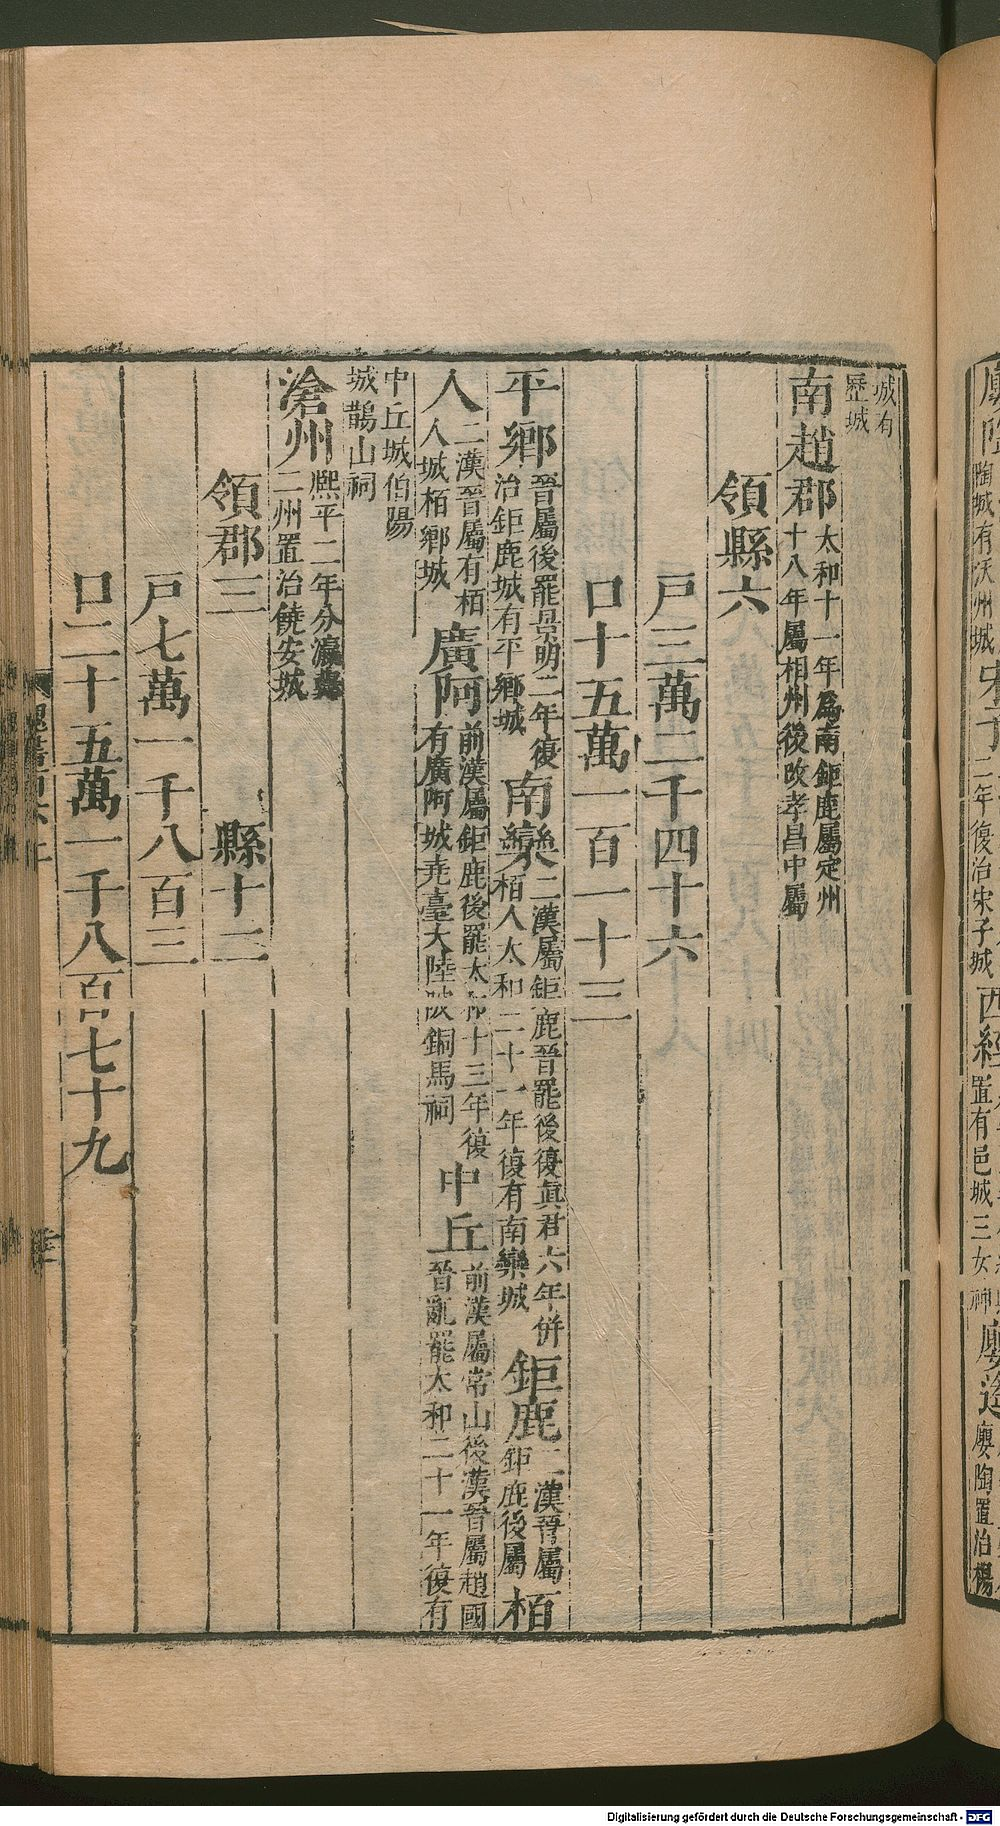 城有歷城
南趙郡太和十一年爲南鉅鹿屬定州十八年屬相州後改孝昌中屬
領縣六
戸三萬二千四十六
口十五萬一百一十三
平鄉晉屬後罷景明二年復治鉅鹿城有平鄉城南欒二漢屬鉅鹿晉罷後復眞君六年併栢人太和二十一年復有南欒城鉅鹿二漢晉屬鉅鹿後屬栢
人二漢晉屬有栢人城栢鄉城廣阿前漢屬鉅鹿後罷太和十三年復有廣阿城尭臺大陸陂銅馬祠中丘前漢屬常山後漢晉屬趙國晉亂罷太和二十一年復有
中丘城伯陽城鵲山祠
滄州熙平二年分瀛冀二州置治饒安城
領郡三 縣十二
戸七萬一千八百三
口二十五萬一千八百七十九
陶城有沃州城
二年復治宋子城
置有邑城三女神
廮陶置治楊
Digitalisierung gefördert durch die Deutsche Forschungsgemeinschaft - DFG